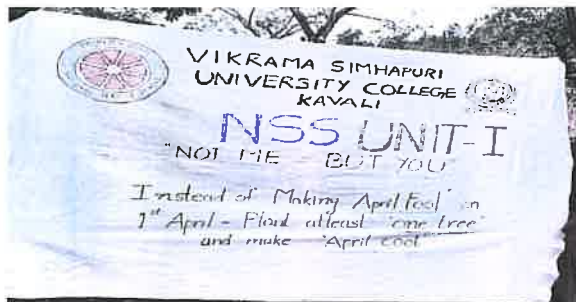 VIKRAMA SIMHAPURI
UNIVERSITY COLLEGE
KAVALI
NSS UNIT-I
"NOT ME BUT YOU"
Instead of Making April Fool" on
1st April - Plant atleast "one tree"
and make "April cool"